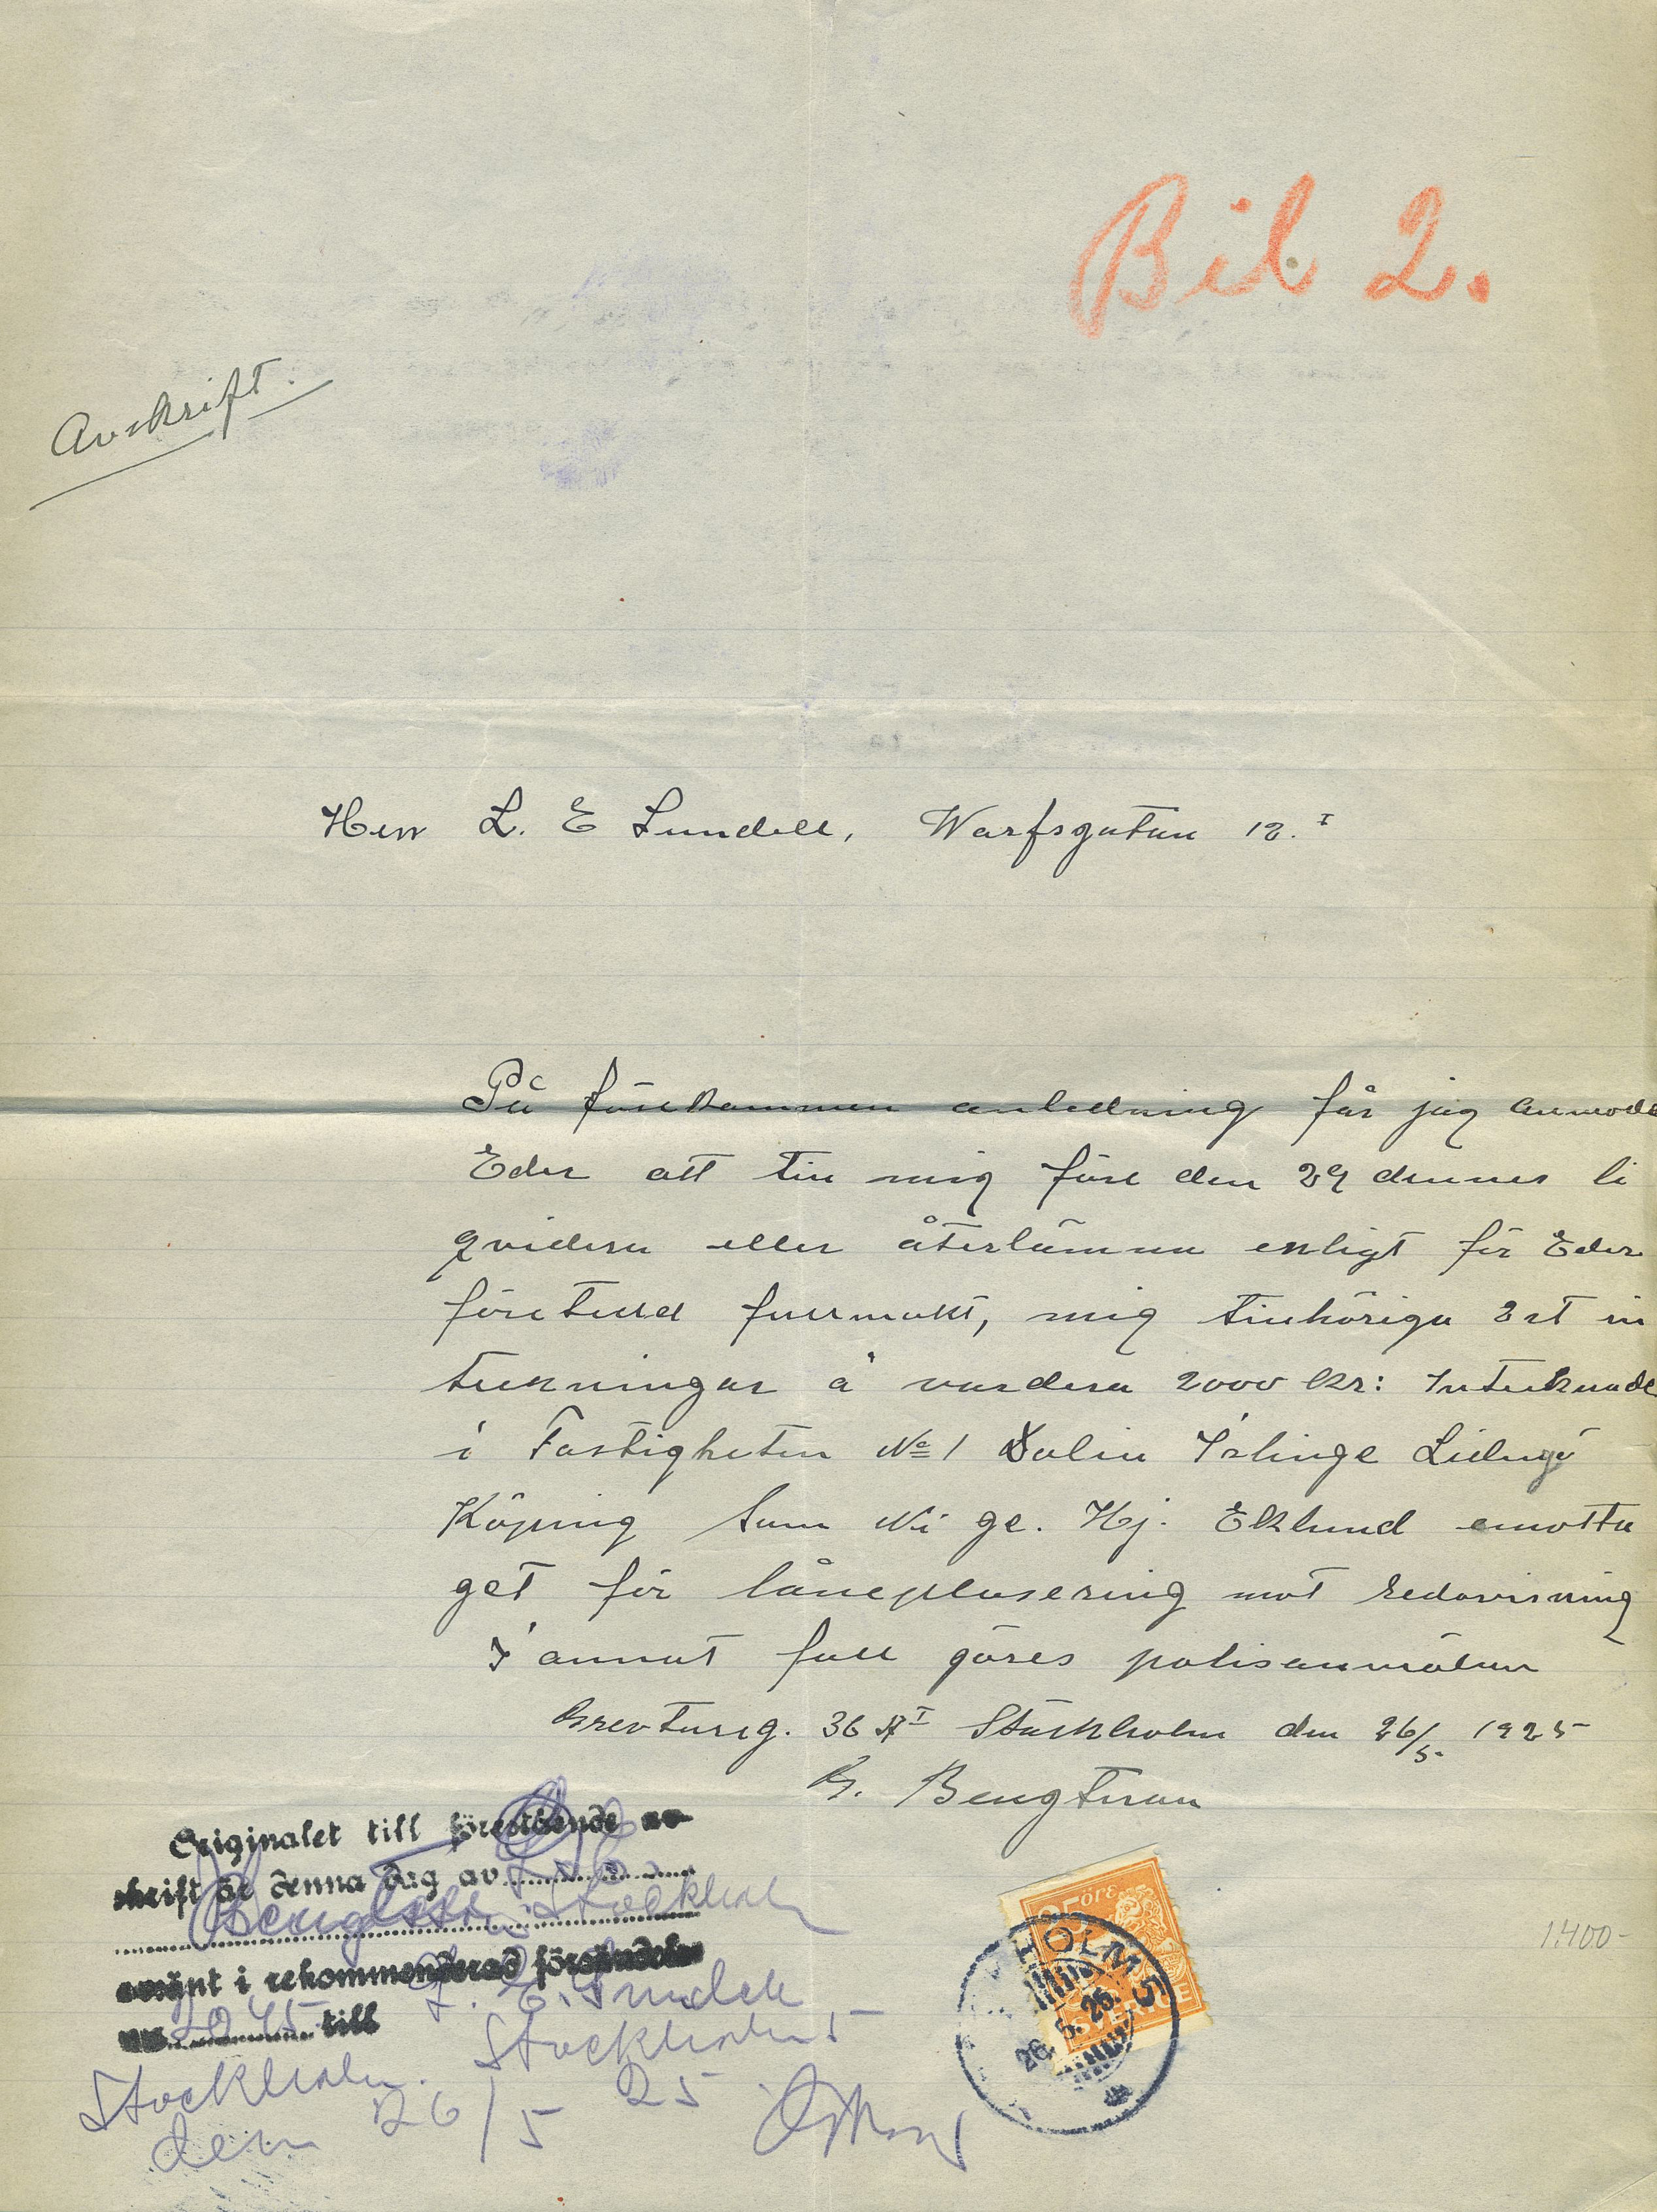 Bil 2.
Avskrift.
Herr L. E Lundell, Warfsgatan 12. I
På förekommen anledning får jag anmoda
Eder att till mig före den 29 dennes li
qvidera eller återlämna enligt för Eder
företedd fullmakt, mig tillhöriga 2 st in
teckningar á vardera 2000 kr: Intecknade
i Fastigheten No 1 Dalin Islinge Lidingö
Köping som Ni ge. Hj. Eklund emotta
get för låneplasering mot redovisning
I annat fall göres polisanmälan
Brevtureg. 36 A I Stockholm den 26/5 1925
B. Bengtsson
Originalet till förestående av-
skrift är denna dag av
Bengtsson Stockholm
avsänt i rekommenderad försändelse
L. E. Lundell
till
Stockholm 5
Stockholm
den 26/5 25
25 ÖRE
SVERIGE
HOLM 5
26. 5. 25.
1400-